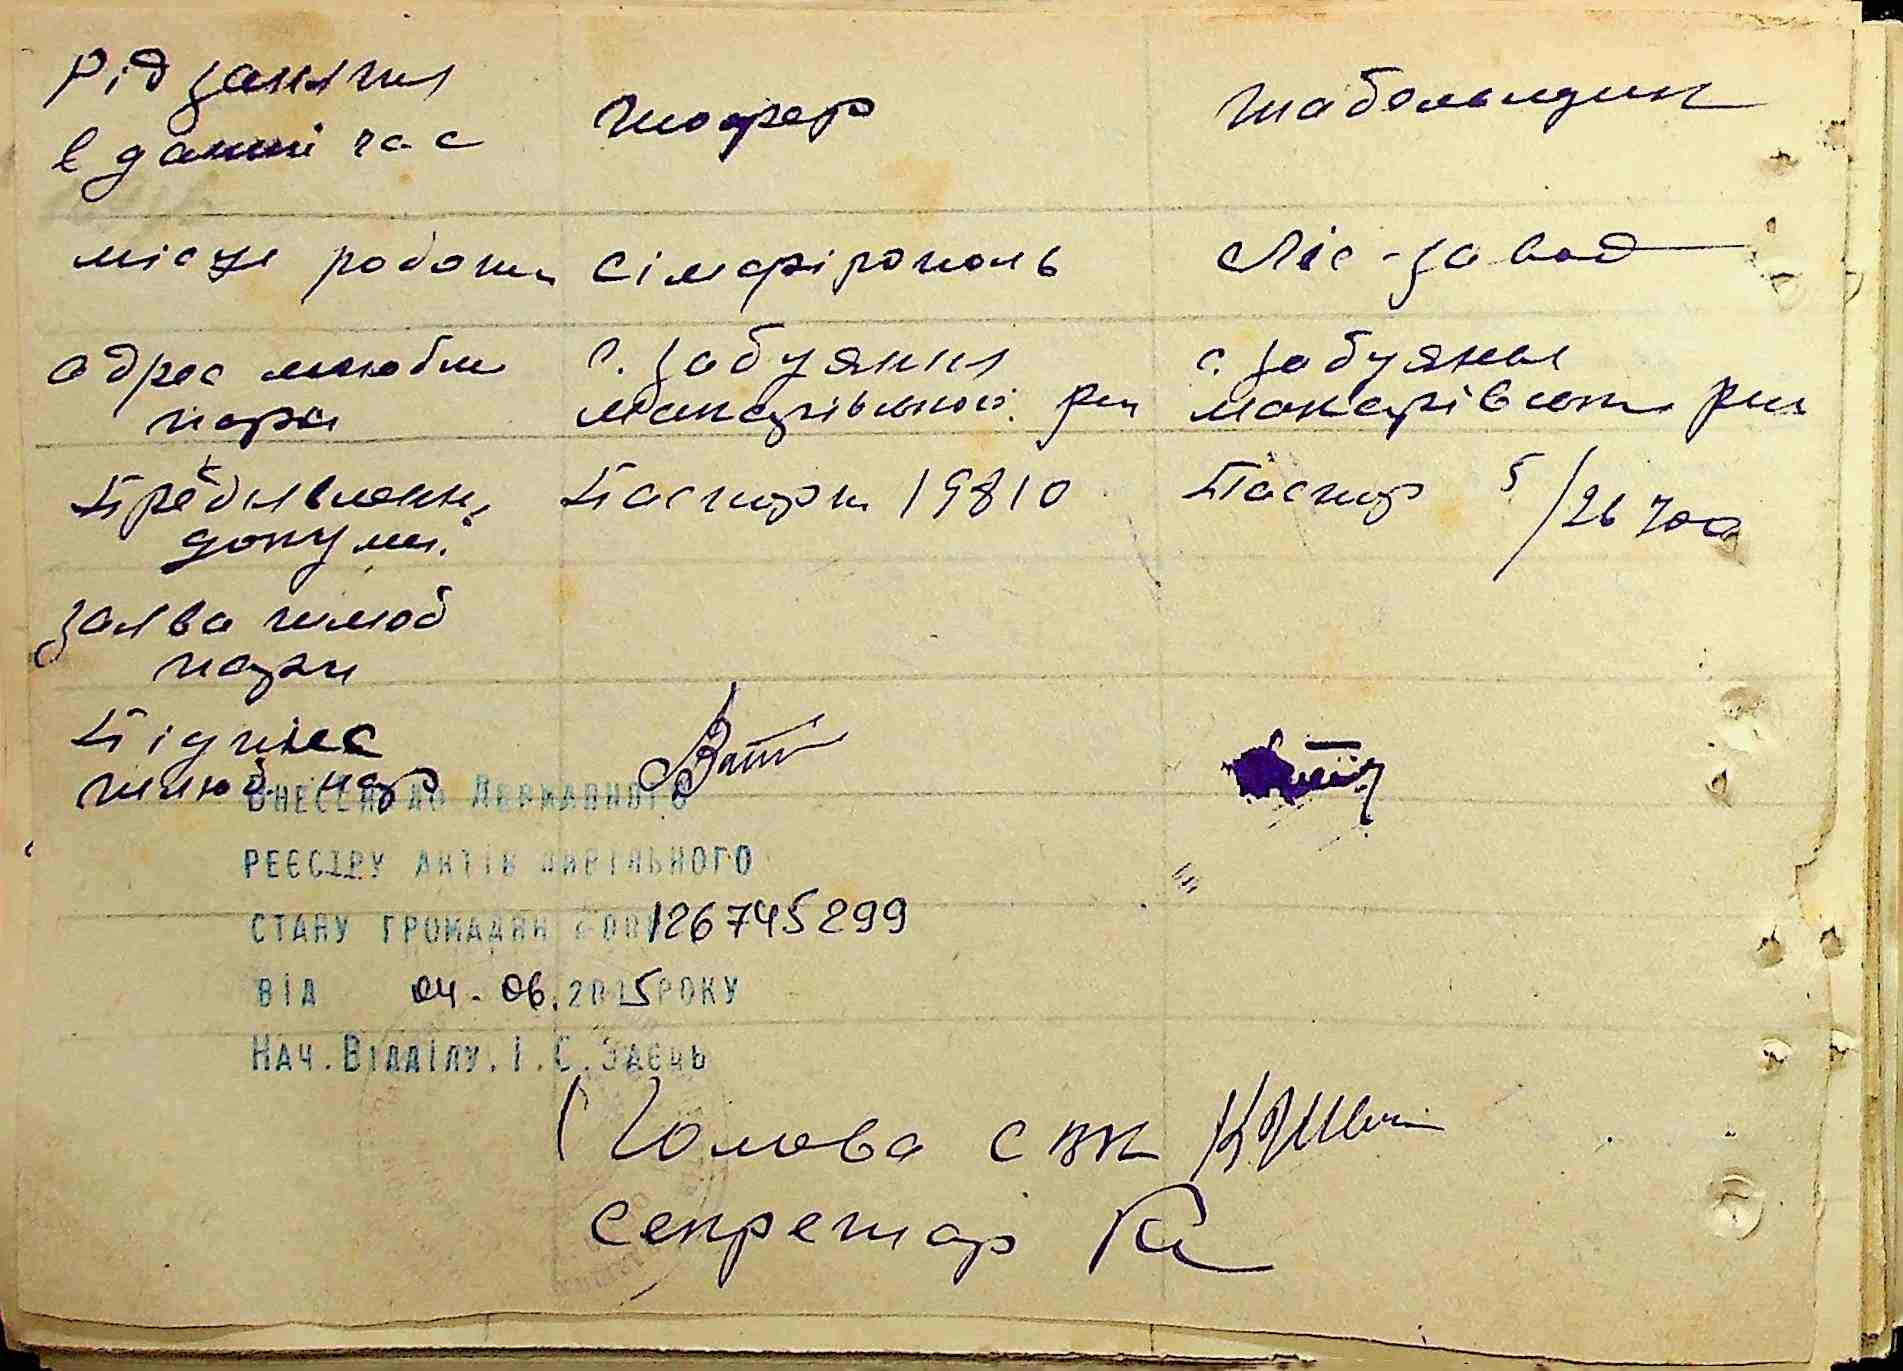 Рід заняття
в даний час
шофер
табельщик
місце роботи
Сімфірополь
Ліс-завод
адрес шлюбн
пари
с. Забуяння
Макарівської р-н
с. Забуяння
Макарівськ р-н
Предявлени
докум.
Паспорт 19810
Паспор 5/26700
заява шлюб
пари
Підпис
шлюб. пар
Внесено до Державного
реєстру актів цивільного
стану громадян 126745299
від 04.06.2015 року
Нач. Відділу. І. С. Заєць
Голова СВК
Секретар